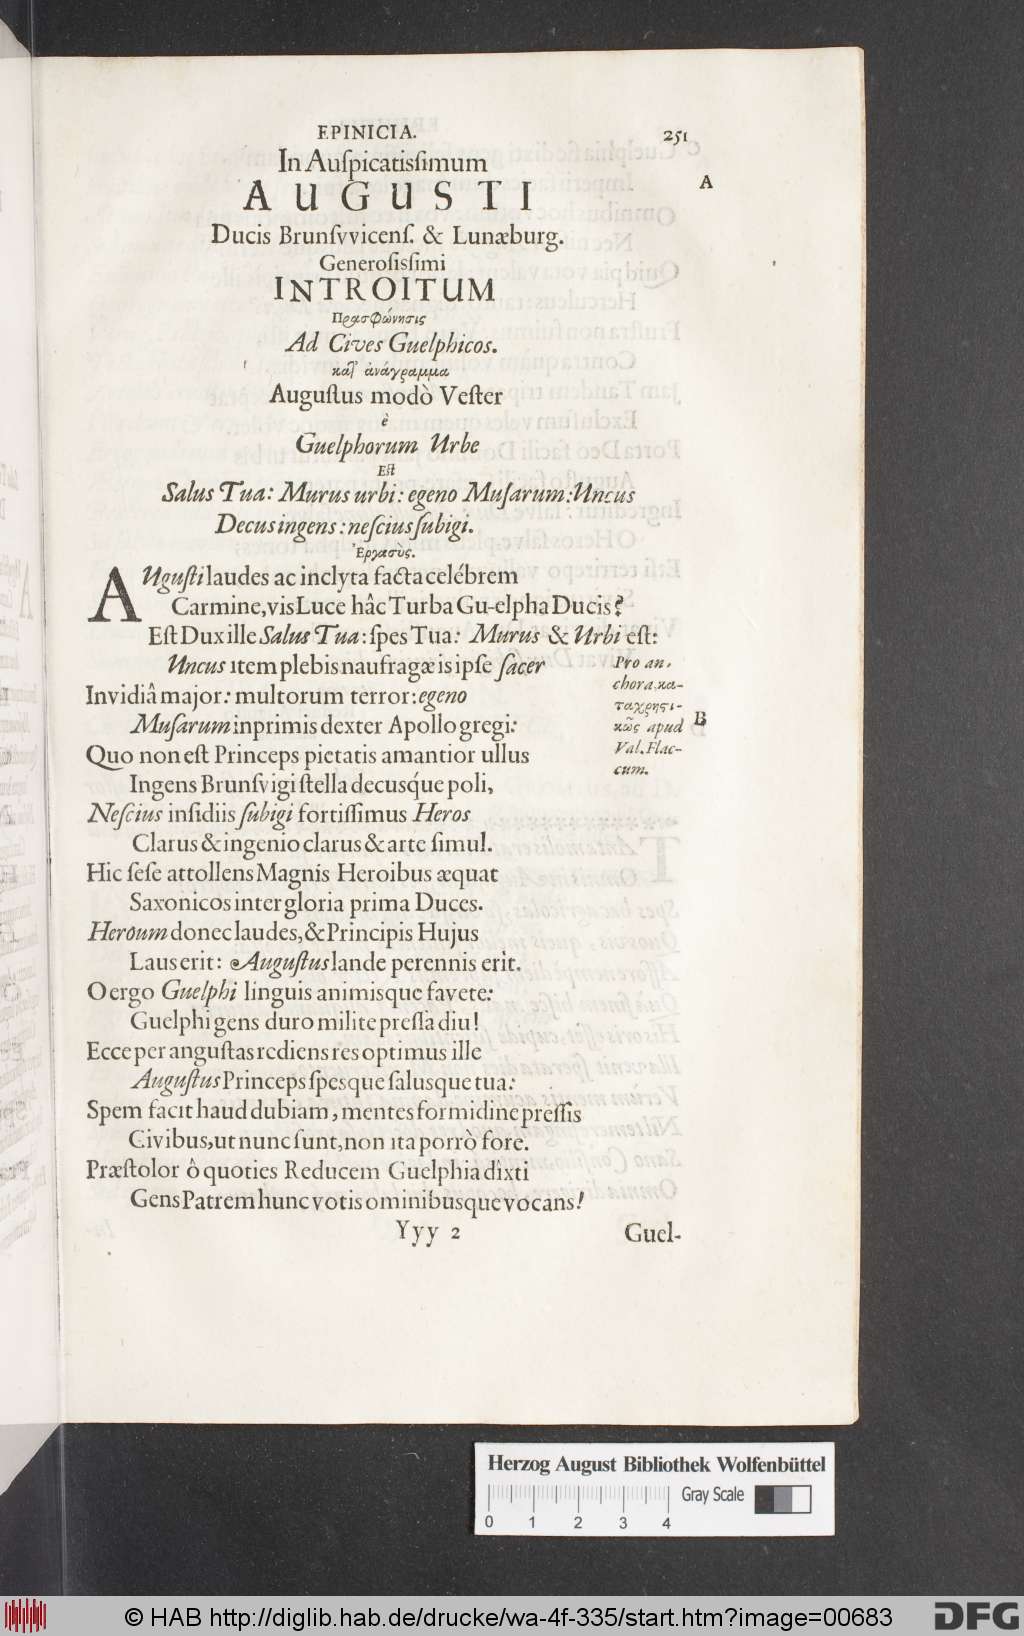 EPINICIA. 251
In Auſpicatisſimum
A
AUGUSTI
Ducis Brunſvvicenſ. & Lunæburg.
Generoſisſimi
INTROITUM
Προσφώνησις
Ad Cives Guelphicos.
καὶ ἀνάγραμμα
Auguſtus modò Veſter
è
Guelphorum Urbe
Eſt
Salus Tua: Murus urbi: egeno Muſarum: Uncus
Decus ingens: neſcius ſubigi.
AUguſti laudes ac inclyta facta celébrem
Carmine, vis Luce hâc Turba Gu-elpha Ducis?
Eſt Dux ille Salus Tua: ſpes Tua: Murus & Urbi eſt:
Uncus item plebis naufragæ is ipſe ſacer
Invidiâ major: multorum terror: egeno
Muſarum inprimis dexter Apollo gregi:
Quo non eſt Princeps pietatis amantior ullus
Ingens Brunſvigi ſtella decusq́ue poli,
Neſcius inſidiis ſubigi fortiſſimus Heros
Clarus & ingenio clarus & arte ſimul.
Hic ſeſe attollens Magnis Heroibus æquat
Saxonicos inter gloria prima Duces.
Heroum donec laudes, & Principis Hujus
Laus erit: Auguſtus lande perennis erit.
O ergo Guelphi linguis animisque favete:
Guelphi gens duro milite preſſa diu!
Ecce per anguſtas rediens res optimus ille
Auguſtus Princeps ſpesque ſalusque tua:
Spem facit haud dubiam, mentes formidine preſſis
Civibus, ut nunc ſunt, non ita porrò fore.
Præſtolor ô quoties Reducem Guelphia dixti
Gens Patrem hunc votis ominibusque vocans!
Pro an-
chora, κα-
ταχρηστι-
κῶς apud
Val. Flac-
cum.
B
Yyy 2 Guel-
Herzog August Bibliothek Wolfenbüttel
Gray Scale
0 1 2 3 4
© HAB http://diglib.hab.de/drucke/wa-4f-335/start.htm?image=00683
DFG